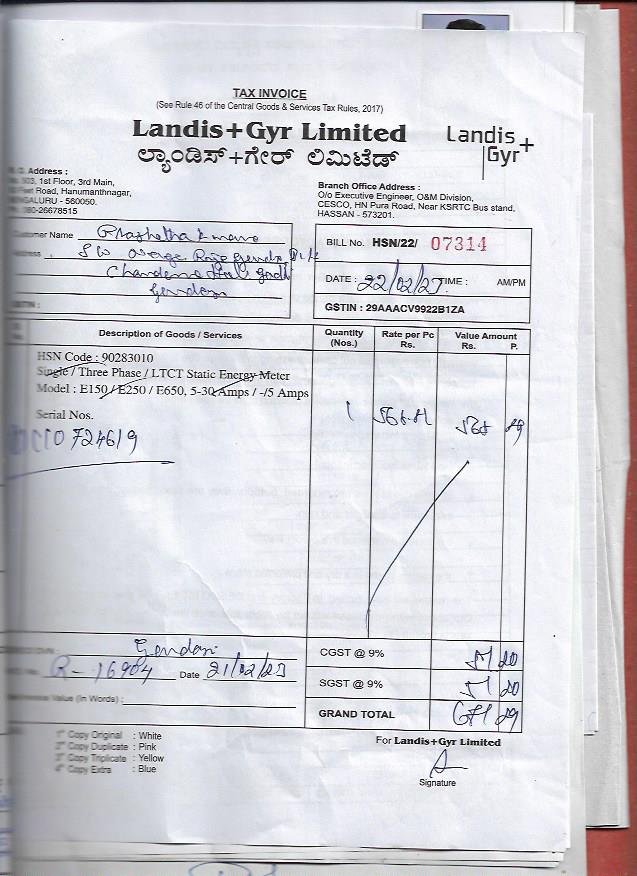 TAX INVOICE
(See Rule 46 of the Central Goods & Services Tax Rules, 2017)
Landis+Gyr Limited
ಲ್ಯಾಂಡಿಸ್+ಗೇರ್ ಲಿಮಿಟೆಡ್
Landis+
Gyr
Address :
1st Floor, 3rd Main,
Road, Hanumanthnagar,
560050.
26678515
Branch Office Address :
O/o Executive Engineer, O&M Division,
CESCO, HN Pura Road, Near KSRTC Bus stand,
HASSAN - 573201.
Customer Name
BILL No. HSN/22/ 07314
DATE : 22/02/23 TIME : AM/PM
GSTIN : 29AAACV9922B1ZA
Description of Goods / Services
Quantity (Nos.)
Rate per Pc Rs.
Value Amount Rs. P.
HSN Code : 90283010
Single / Three Phase / LTCT Static Energy Meter
Model : E150 / E250 / E650, 5-30 Amps / -/5 Amps
Serial Nos.
1
724619
Gendasi
R-16904 Date 21/02/23
Value (in Words) :
CGST @ 9% 51 20
SGST @ 9% 51 20
GRAND TOTAL 671 29
1st Copy Original : White
2nd Copy Duplicate : Pink
3rd Copy Triplicate : Yellow
4th Copy Extra : Blue
For Landis+Gyr Limited
Signature